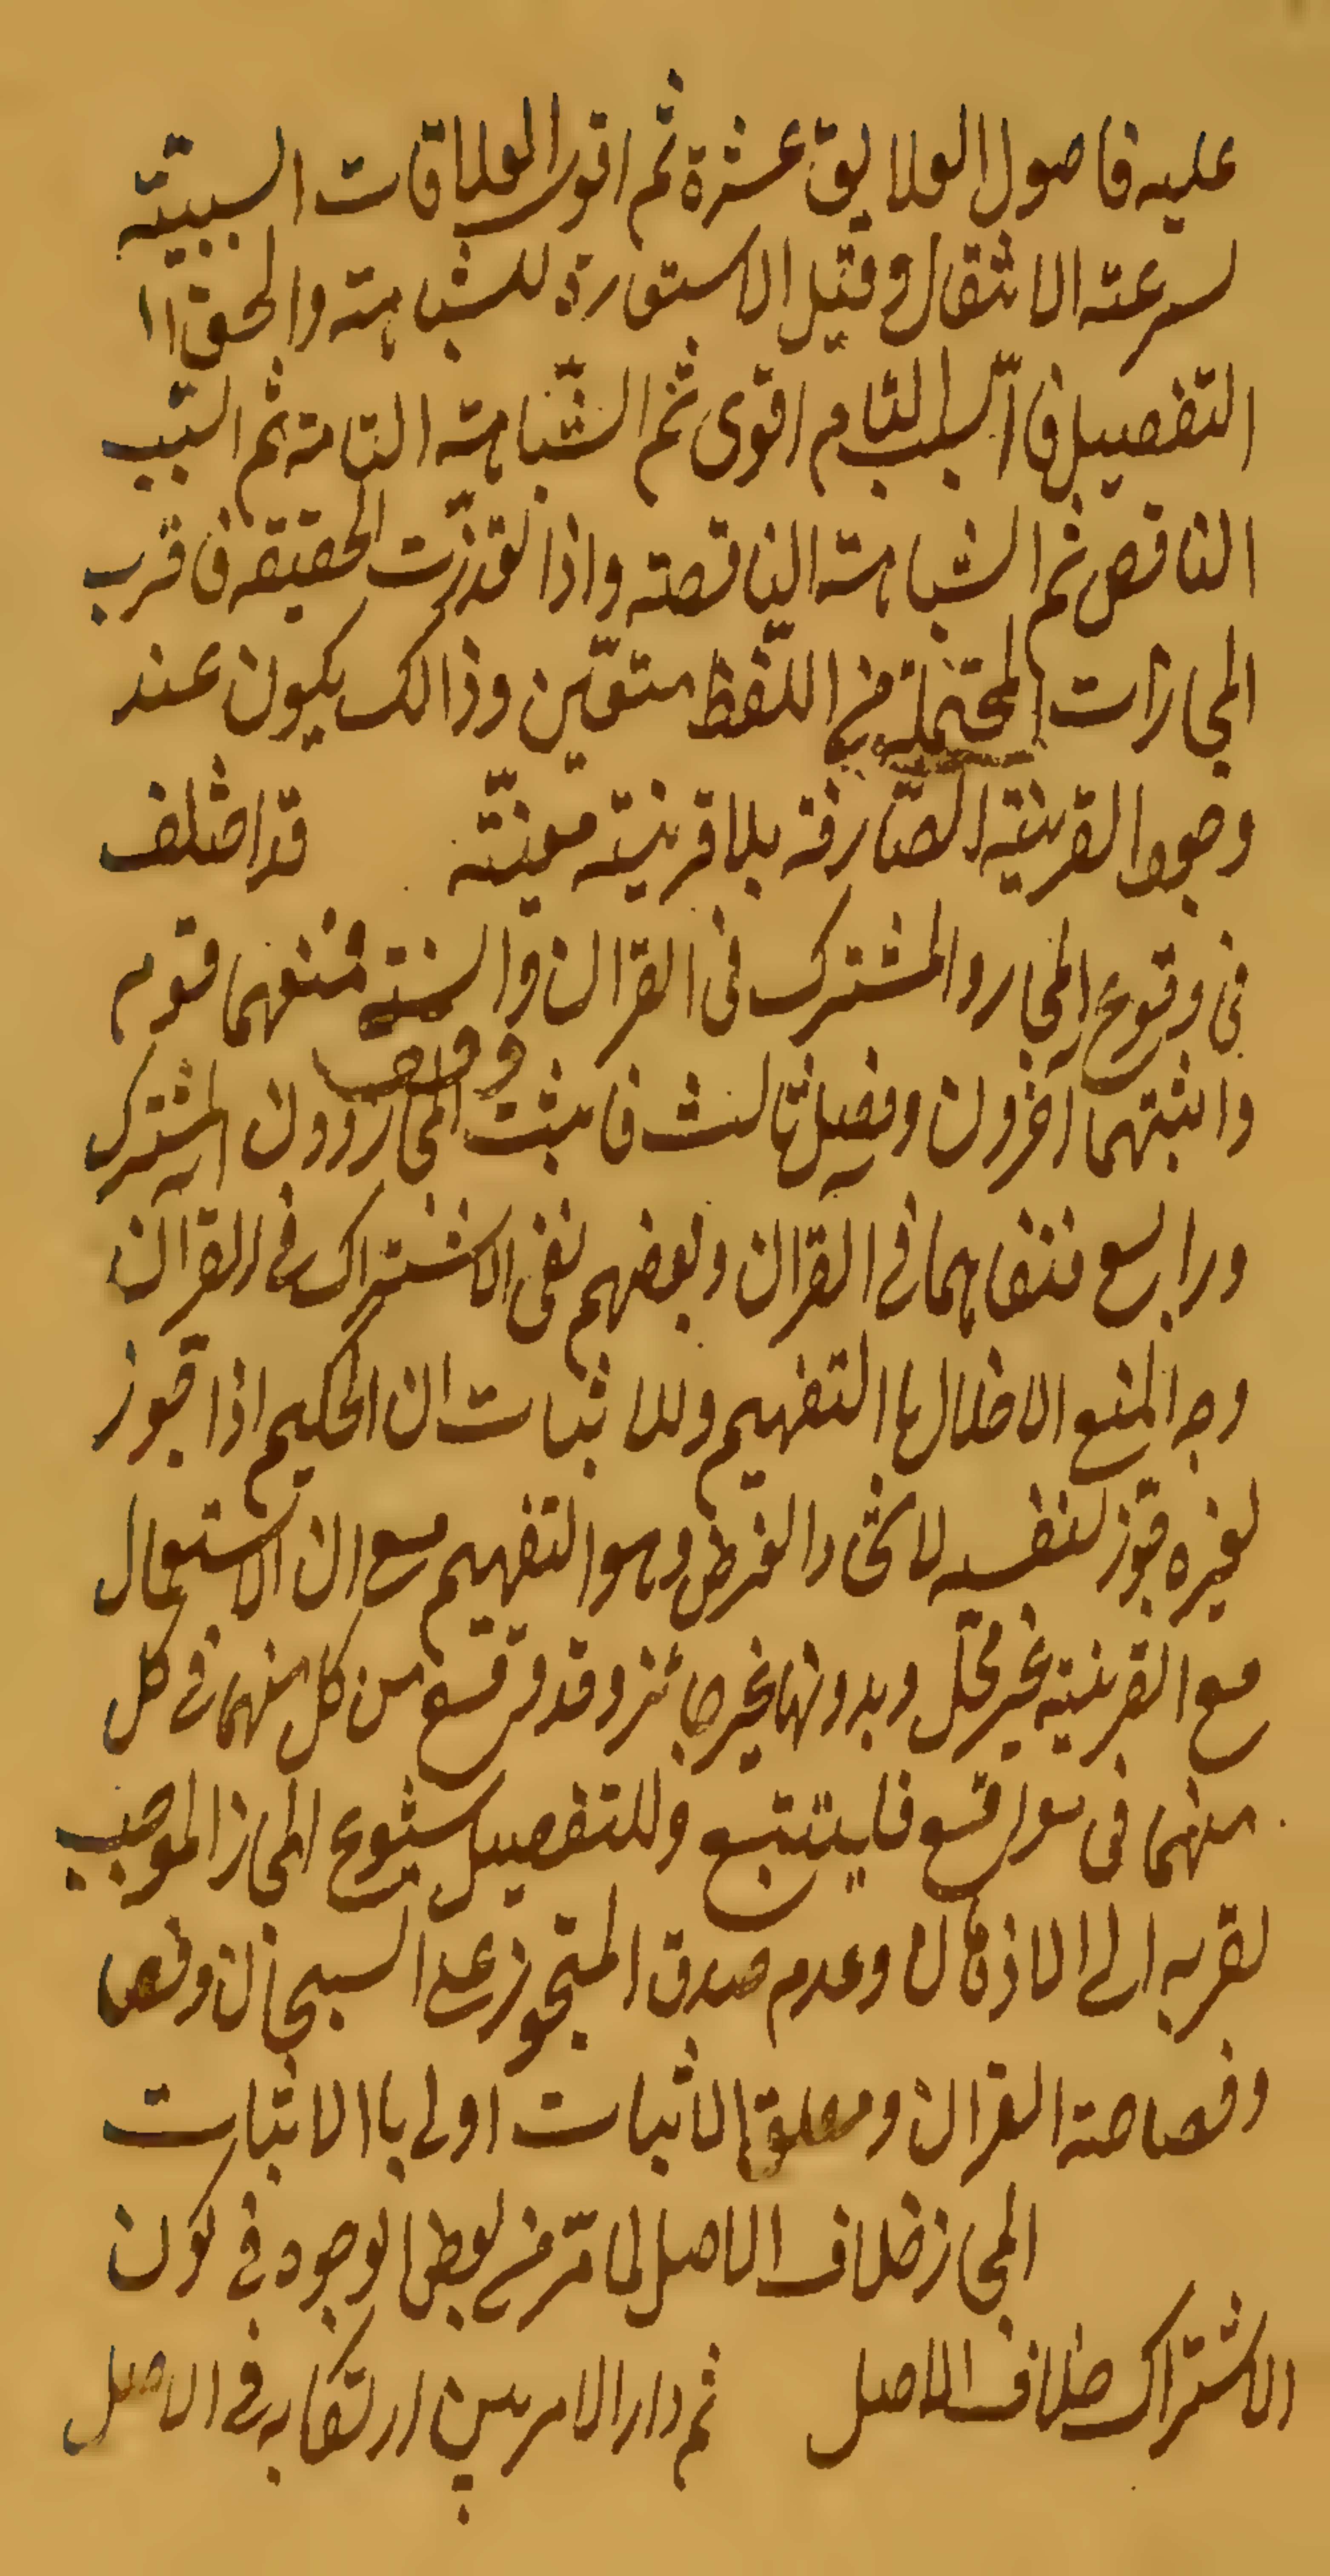 عليه فاصول العلايق عشرة ثم اقوى العلاقات السببيّة
لسرعة الانتقال وقيل الاستعارة للشباهة والحق
التفصيل فا السبب التام اقوى ثم الشّباهة التامة ثم السّبب
الناقص ثم الشباهة الناقصة واذا تعذّرت الحقيقه فاقرب
المجازات المحتملة في اللّفظ متعيّن وذالك يكون عند
وجود القرينة الصّارفة بلا قرينة معينّة قد اختلف
فى وقوع المجاز والمشترك فى القران والسنة فمنعهما قوم
واثبتهما اخرون وفصل ثالث فاثبت المجاز دون المشترك
ورابع فنفاهما فى القران وبعضهم نفى الاشتراك فى القران
وجه المنع الاخلال باالتفهيم وللاثبات ان الحكيم اذا جوز
لغيره جوّز لنفسه لاتحاد الغرض وهو التفهيم مع ان الاستعمال
مع القرينة غير مخل وبدونها غير جائز وقد وقع من كل منهما فى كل
منهما فى مواقع فليتتبع وللتفصيل شيوع المجاز الموجب
لقربه الى الاذهان وعدم صدق المتجوز على السبحان ونص
وفصاحة القران ومعلق الاثبات اولى باالاثبات
المجاز خلاف الاصل لما مّر فى بعض الوجوه فى كون
الاشتراك خلاف الاصل ثم دار الامر بين ارتكابه فى الاصل